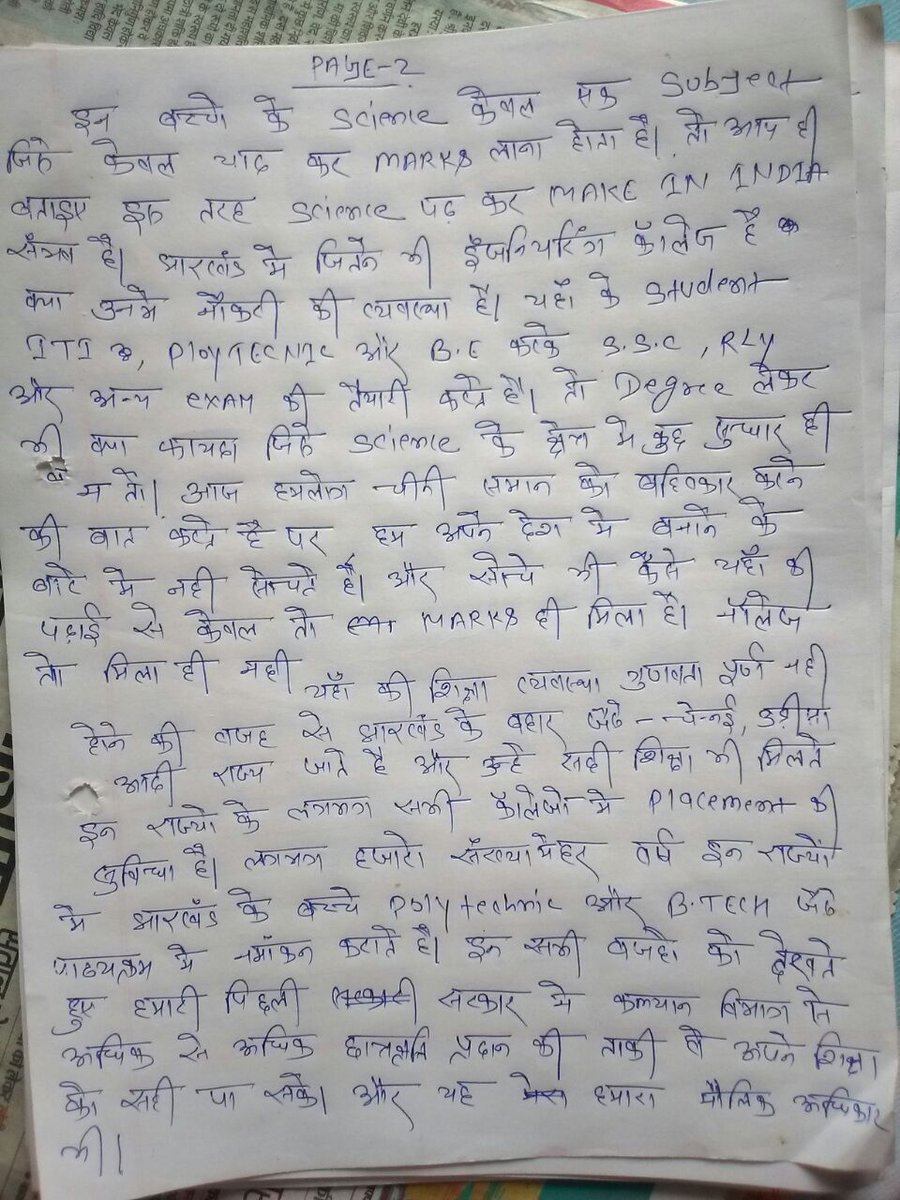 PAGE-2
इन बच्चो के Science केवल एक Subject
जिसे केवल याद कर MARKS लाना होता है। तो आप ही
बताइए इस तरह Science पढ़ कर MAKE IN INDIA
संभव है। झारखंड मे जितने भी इंजनियरिंग कॉलेज है
क्या उनमे नौकरी की व्यवस्था है। यहाँ के Student
ITI, PloyTECNIC और B.E करके S.S.C, RLY
और अन्य EXAM की तैयारी करते है। तो Degree लेकर
भी क्या फायदा जिसे Science के क्षेत्र मे कुछ सुधार ही
न तो। आज हमलोग चीनी समान को बहिस्कार करने
की बात करते है पर हम अपने देश मे बनाने के
बारे मे नही सोचते है। और सोचे भी कैसे यहाँ की
पढ़ाई से केवल तो MARKS ही मिला है। नॉलेज
तो मिला ही नही
यहाँ की शिक्षा व्यवस्था गुणवता पूर्ण नही
होने की वजह से झारखंड के बहार जैसे - चेन्नई, उड़ीसा
आदी राज्य जाते है और उन्हे सही शिक्षा भी मिलते
इन राज्यो के लगभग सभी कॉलेजो मे Placement की
सुविधा है। लगभग हजारो संख्या मे हर वर्ष इन राज्यों
मे झारखंड के बच्चे Polytechnic और B.TECH जैसे
पाठ्यक्रम मे नमांकन कराते है। इन सभी वजहो को देखते
हुए हमारी पिछली सरकार मे कल्यान विभाग ने
अधिक से अधिक छात्रवृति प्रदान की ताकी वे अपने शिक्षा
को सही पा सके। और यह हमारा मौलिक अधिकार
भी।